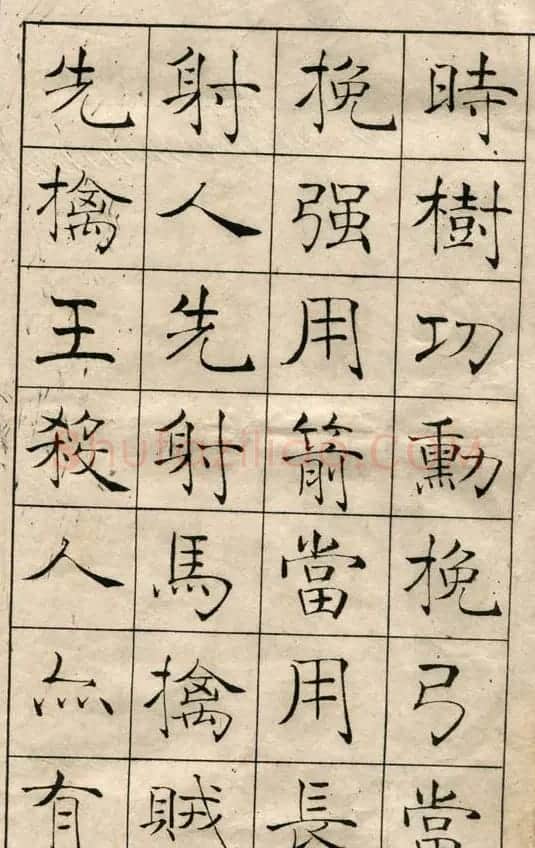 時樹功勳挽弓當
挽强用箭當用長
射人先射馬擒賊
先擒王殺人亦有
shufaziliao.COM